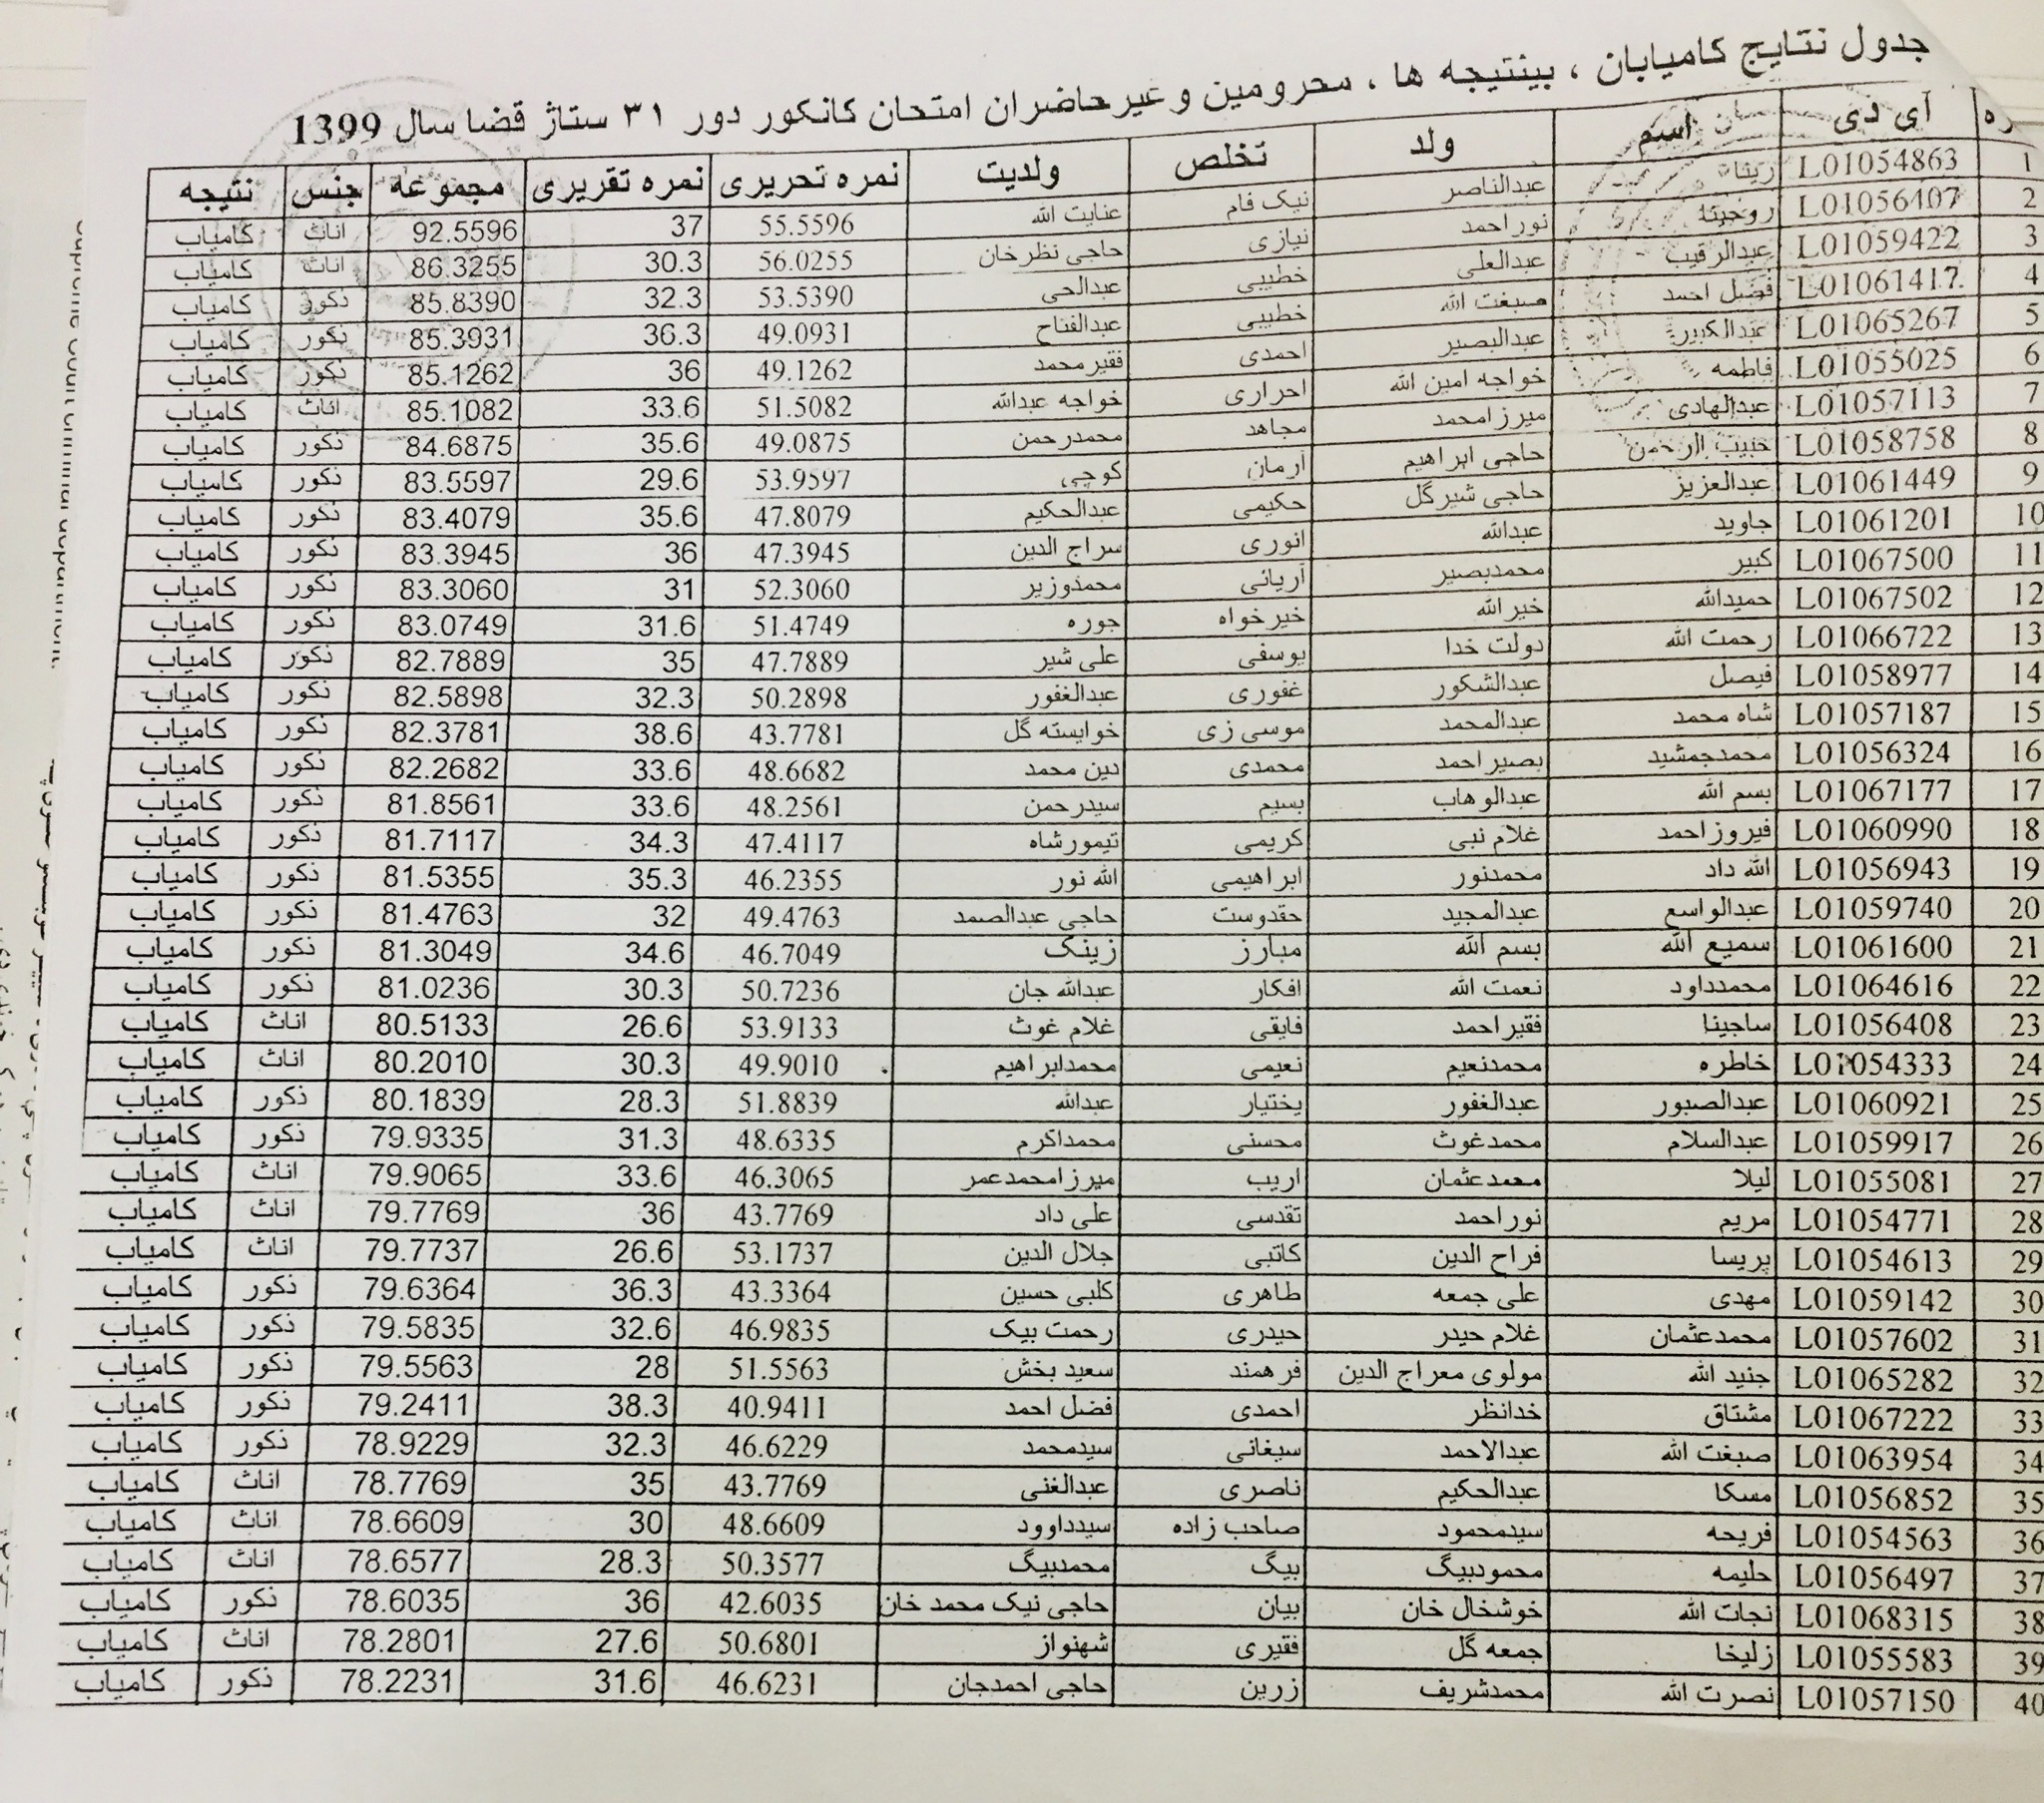 جدول نتایج کامیابان ، بینتیجه ها ، محرومین و غیرحاضران امتحان کانکور دور ۳۱ ستاژ قضا سال 1399
ره آی دی اسم ولد تخلص ولدیت نمره تحریری نمره تقریری مجموعه جنس نتیجه
1 L01054863 زینا عبدالناصر نیک فام عنایت الله 55.5596 37 92.5596 اناث کامیاب
2 L01056407 روحینا نوراحمد نیازی حاجی نظرخان 56.0255 30.3 86.3255 اناث کامیاب
3 L01059422 عبدالرقیب عبدالعلی خطیبی عبدالحی 53.5390 32.3 85.8390 ذکور کامیاب
4 L01061417 فضل احمد صبغت الله خطیبی عبدالفتاح 49.0931 36.3 85.3931 ذکور کامیاب
5 L01065267 عبدالکبیر عبدالبصیر احمدی فقیرمحمد 49.1262 36 85.1262 ذکور کامیاب
6 L01055025 فاطمه خواجه امین الله احراری خواجه عبدالله 51.5082 33.6 85.1082 اناث کامیاب
7 L01057113 عبدالهادی میرزامحمد مجاهد محمدرحمن 49.0875 35.6 84.6875 ذکور کامیاب
8 L01058758 حبیب الرحمن حاجی ابراهیم آرمان کوچی 53.9597 29.6 83.5597 ذکور کامیاب
9 L01061449 عبدالعزیز حاجی شیرگل حکیمی عبدالحکیم 47.8079 35.6 83.4079 ذکور کامیاب
10 L01061201 جاوید عبدالله انوری سراج الدین 47.3945 36 83.3945 ذکور کامیاب
11 L01067500 کبیر محمدبصیر آریانی محمدوزیر 52.3060 31 83.3060 ذکور کامیاب
12 L01067502 حمیدالله خیرالله خیرخواه جوره 51.4749 31.6 83.0749 ذکور کامیاب
13 L01066722 رحمت الله دولت خدا یوسفی علی شیر 47.7889 35 82.7889 ذکور کامیاب
14 L01058977 فیصل عبدالشکور غفوری عبدالغفور 50.2898 32.3 82.5898 ذکور کامیاب
15 L01057187 شاه محمد عبدالمحمد موسی زی خوایسته گل 43.7781 38.6 82.3781 ذکور کامیاب
16 L01056324 محمدجمشید بصیراحمد محمدی دین محمد 48.6682 33.6 82.2682 ذکور کامیاب
17 L01067177 بسم الله عبدالوهاب بسیم سیدرحمن 48.2561 33.6 81.8561 ذکور کامیاب
18 L01060990 فیروزاحمد غلام نبی کریمی تیمورشاه 47.4117 34.3 81.7117 ذکور کامیاب
19 L01056943 الله داد محمدنور ابراهیمی الله نور 46.2355 35.3 81.5355 ذکور کامیاب
20 L01059740 عبدالواسع عبدالمجید حقدوست حاجی عبدالصمد 49.4763 32 81.4763 ذکور کامیاب
21 L01061600 سمیع الله بسم الله مبارز زینک 46.7049 34.6 81.3049 ذکور کامیاب
22 L01064616 محمدداود نعمت الله افکار عبدالله جان 50.7236 30.3 81.0236 ذکور کامیاب
23 L01056408 ساجینا فقیراحمد فایقی غلام غوث 53.9133 26.6 80.5133 اناث کامیاب
24 L01054333 خاطره محمدنعیم نعیمی محمدابراهیم 49.9010 30.3 80.2010 اناث کامیاب
25 L01060921 عبدالصبور عبدالغفور یختیار عبدالله 51.8839 28.3 80.1839 ذکور کامیاب
26 L01059917 عبدالسلام محمدغوث محسنی محمداکرم 48.6335 31.3 79.9335 ذکور کامیاب
27 L01055081 لیلا محمدعثمان اریب میرزامحمدعمر 46.3065 33.6 79.9065 اناث کامیاب
28 L01054771 مریم نوراحمد تقدسی علی داد 43.7769 36 79.7769 اناث کامیاب
29 L01054613 پریسا فراح الدین کاتبی جلال الدین 53.1737 26.6 79.7737 اناث کامیاب
30 L01059142 مهدی علی جمعه طاهری کلبی حسین 43.3364 36.3 79.6364 ذکور کامیاب
31 L01057602 محمدعثمان غلام حیدر حیدری رحمت بیک 46.9835 32.6 79.5835 ذکور کامیاب
32 L01065282 جنید الله مولوی معراج الدین فرهمند سعید بخش 51.5563 28 79.5563 ذکور کامیاب
33 L01067222 مشتاق خدانظر احمدی فضل احمد 40.9411 38.3 79.2411 ذکور کامیاب
34 L01063954 صبغت الله عبدالاحمد سیغانی سیدمحمد 46.6229 32.3 78.9229 ذکور کامیاب
35 L01056852 مسکا عبدالحکیم ناصری عبدالغنی 43.7769 35 78.7769 اناث کامیاب
36 L01054563 فریحه سیدمحمود صاحب زاده سیدداوود 48.6609 30 78.6609 اناث کامیاب
37 L01056497 حلیمه محمودبیگ بیگ محمدبیگ 50.3577 28.3 78.6577 اناث کامیاب
38 L01068315 نجات الله خوشخال خان بیان حاجی نیک محمد خان 42.6035 36 78.6035 ذکور کامیاب
39 L01055583 زلیخا جمعه گل فقیری شهنواز 50.6801 27.6 78.2801 اناث کامیاب
40 L01057150 نصرت الله محمدشریف زرین حاجی احمدجان 46.6231 31.6 78.2231 ذکور کامیاب